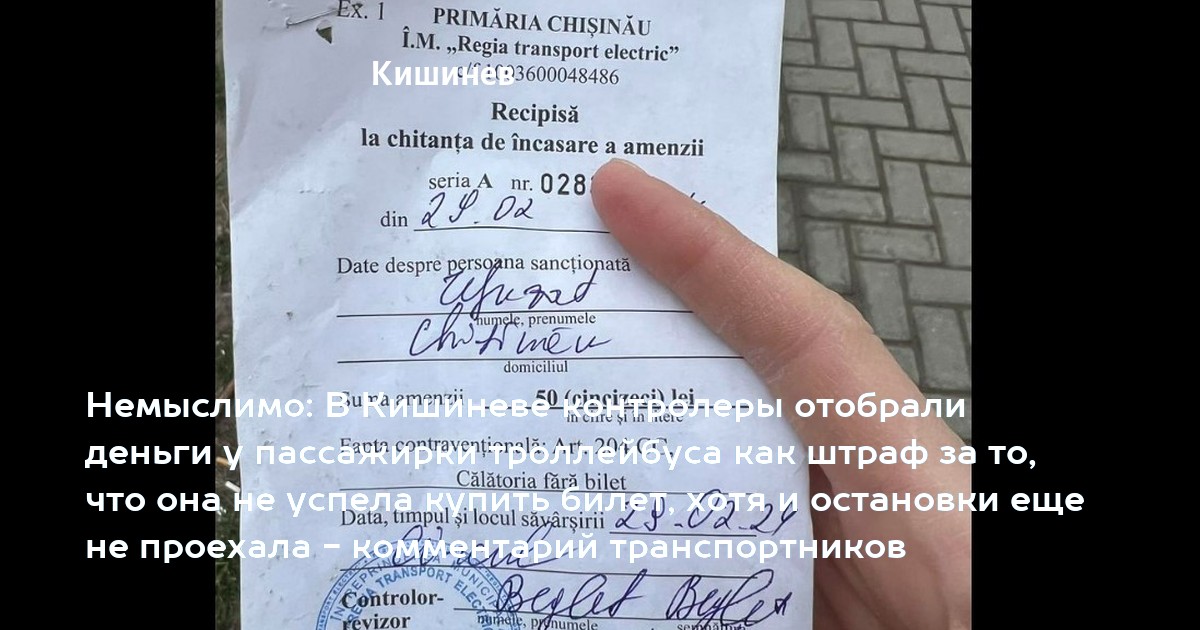 Ex. 1
PRIMĂRIA CHIȘINĂU
Î.M. „Regia transport electric”
Кишинев
c/f 1003600048486
Recipisă
la chitanța de încasare a amenzii
seria A nr. 028
din 29.02
Date despre persoana sancționată
Refuzat
numele, prenumele
Chișinău
domiciliul
Suma amenzii 50 (cincizeci) lei
în cifre și în litere
Немыслимо: В Кишиневе контролеры отобрали
Fapta contravențională: Art. 204 CC,
деньги у пассажирки троллейбуса как штраф за то,
Călătoria fără bilet
что она не успела купить билет, хотя и остановки еще
Data, timpul și locul săvârșirii 29.02.24
не проехала – комментарий транспортников
TRANSPORT
Controlor-
revizor
numele, prenumele